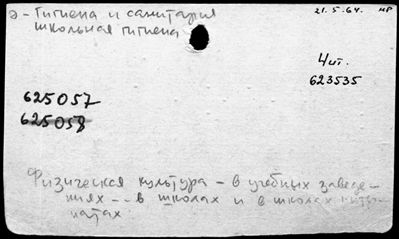 э - Гигиена и санитария
школьная гигиена
21.5.64. нр
4 шт.
623535
625057
625058
Физическая культура - в учебных заведе-
ниях - - в школах и в школах интер-
натах.